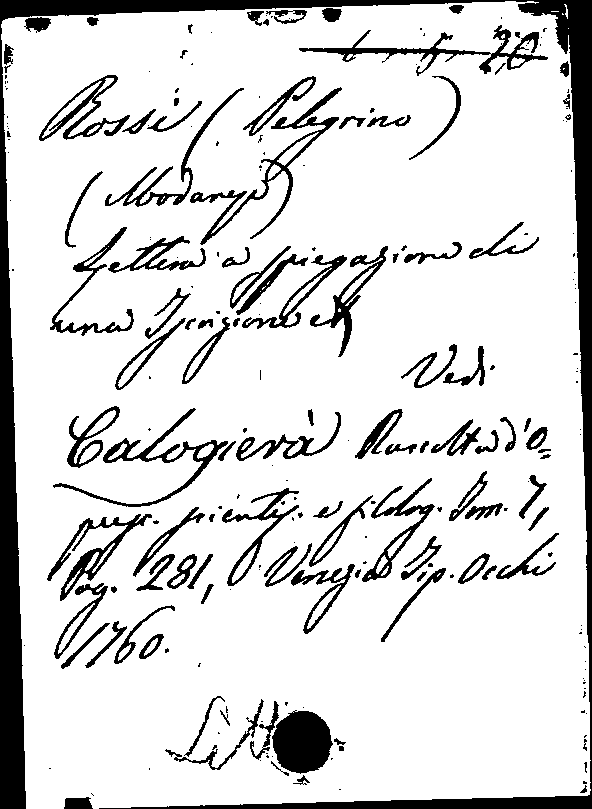 20
Rossi (Pelegrino)
(Modanese)
Lettera a spiegazione di
una Iscrizione etc
Vedi
Calogierà Raccolta d'O=
pusc. scientif. e filolog. Tom. 7,
Pag. 281, Venezia Tip. Occhi
1760.
Litt